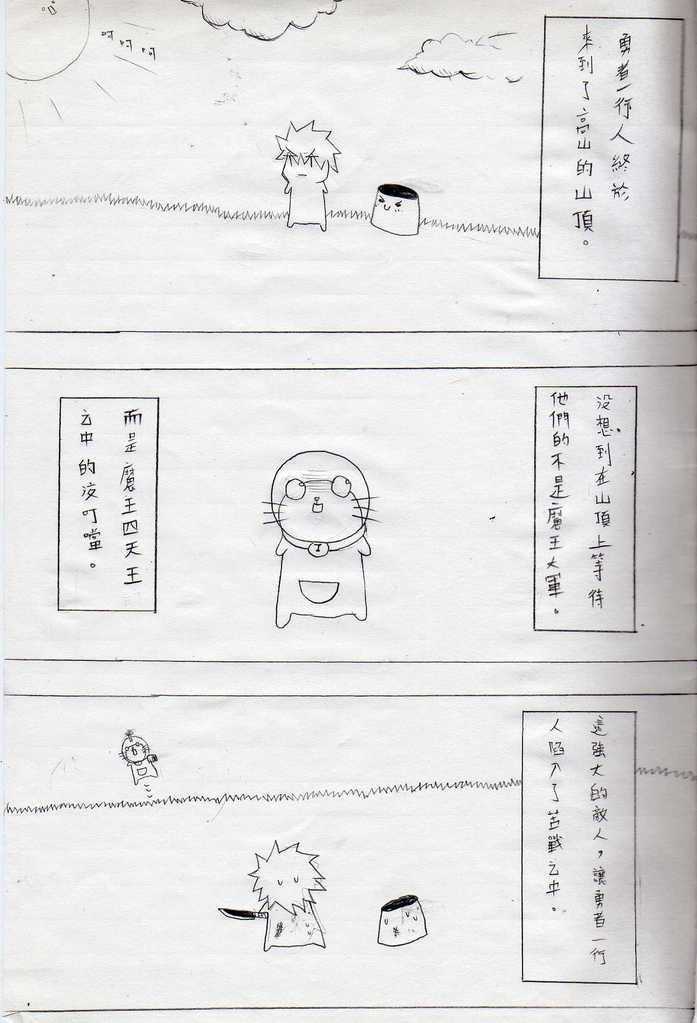 勇者一行人終於
來到了高山的山頂。
呵呵呵
沒想到在山頂上等待
他們的不是魔王大軍。
而是魔王四天王
之中的沒叮噹。
這強大的敵人，讓勇者一行
人陷入了苦戰之中。